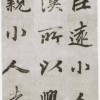 臣遠小人
漢所以興
親小人